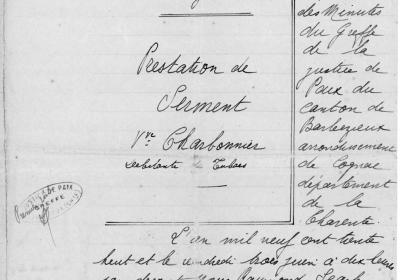 des Minutes
du Greffe
de la
justice de
Paix du
canton de
Barbezieux
arrondissement
de Cognac
département
de la
Charente.
Prestation de
Serment
Vve Charbonnier
Débitante de Tabacs
DE PAIX
GREFFE
L'an mil neuf cent trente
huit et le vendredi trois juin à dix heures